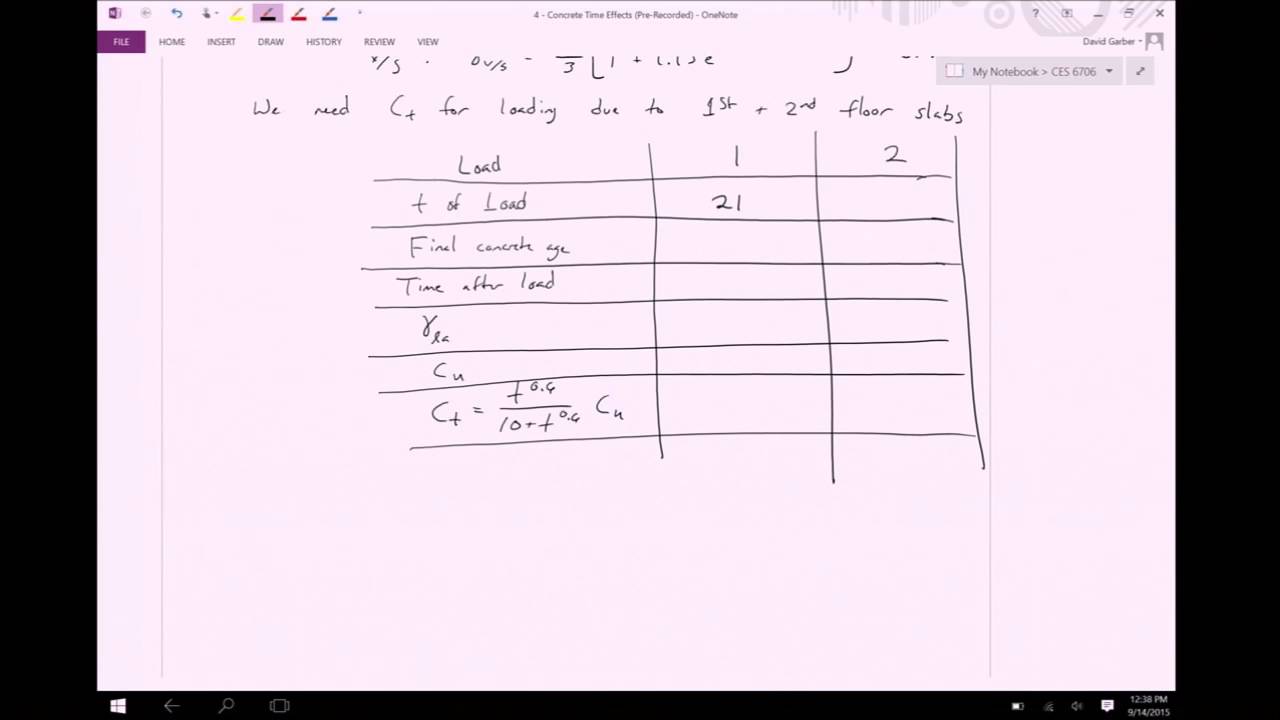 4 - Concrete Time Effects (Pre-Recorded) - OneNote
?
FILE HOME INSERT DRAW HISTORY REVIEW VIEW
David Garber
My Notebook > CES 6706
We need Ct for loading due to 1st + 2nd floor slabs
Load 1 2
t of Load 21
Final concrete age
Time after load
γla
Cu
Ct = t^0.6 / 10+t^0.6 Cu
12:38 PM
9/14/2015